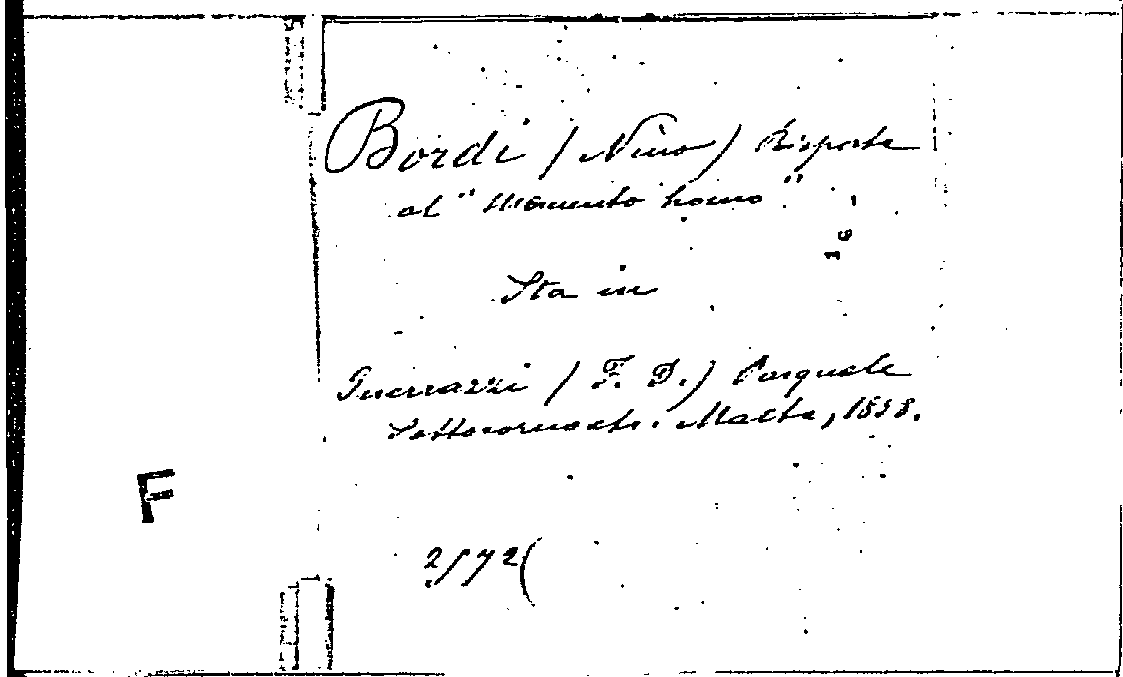 Bordi (Nino) Risposta
al "Memento homo"
Sta in
Guerrazzi (F. D.) Pasquale
Sottocorno etc. Malta, 1858.
F